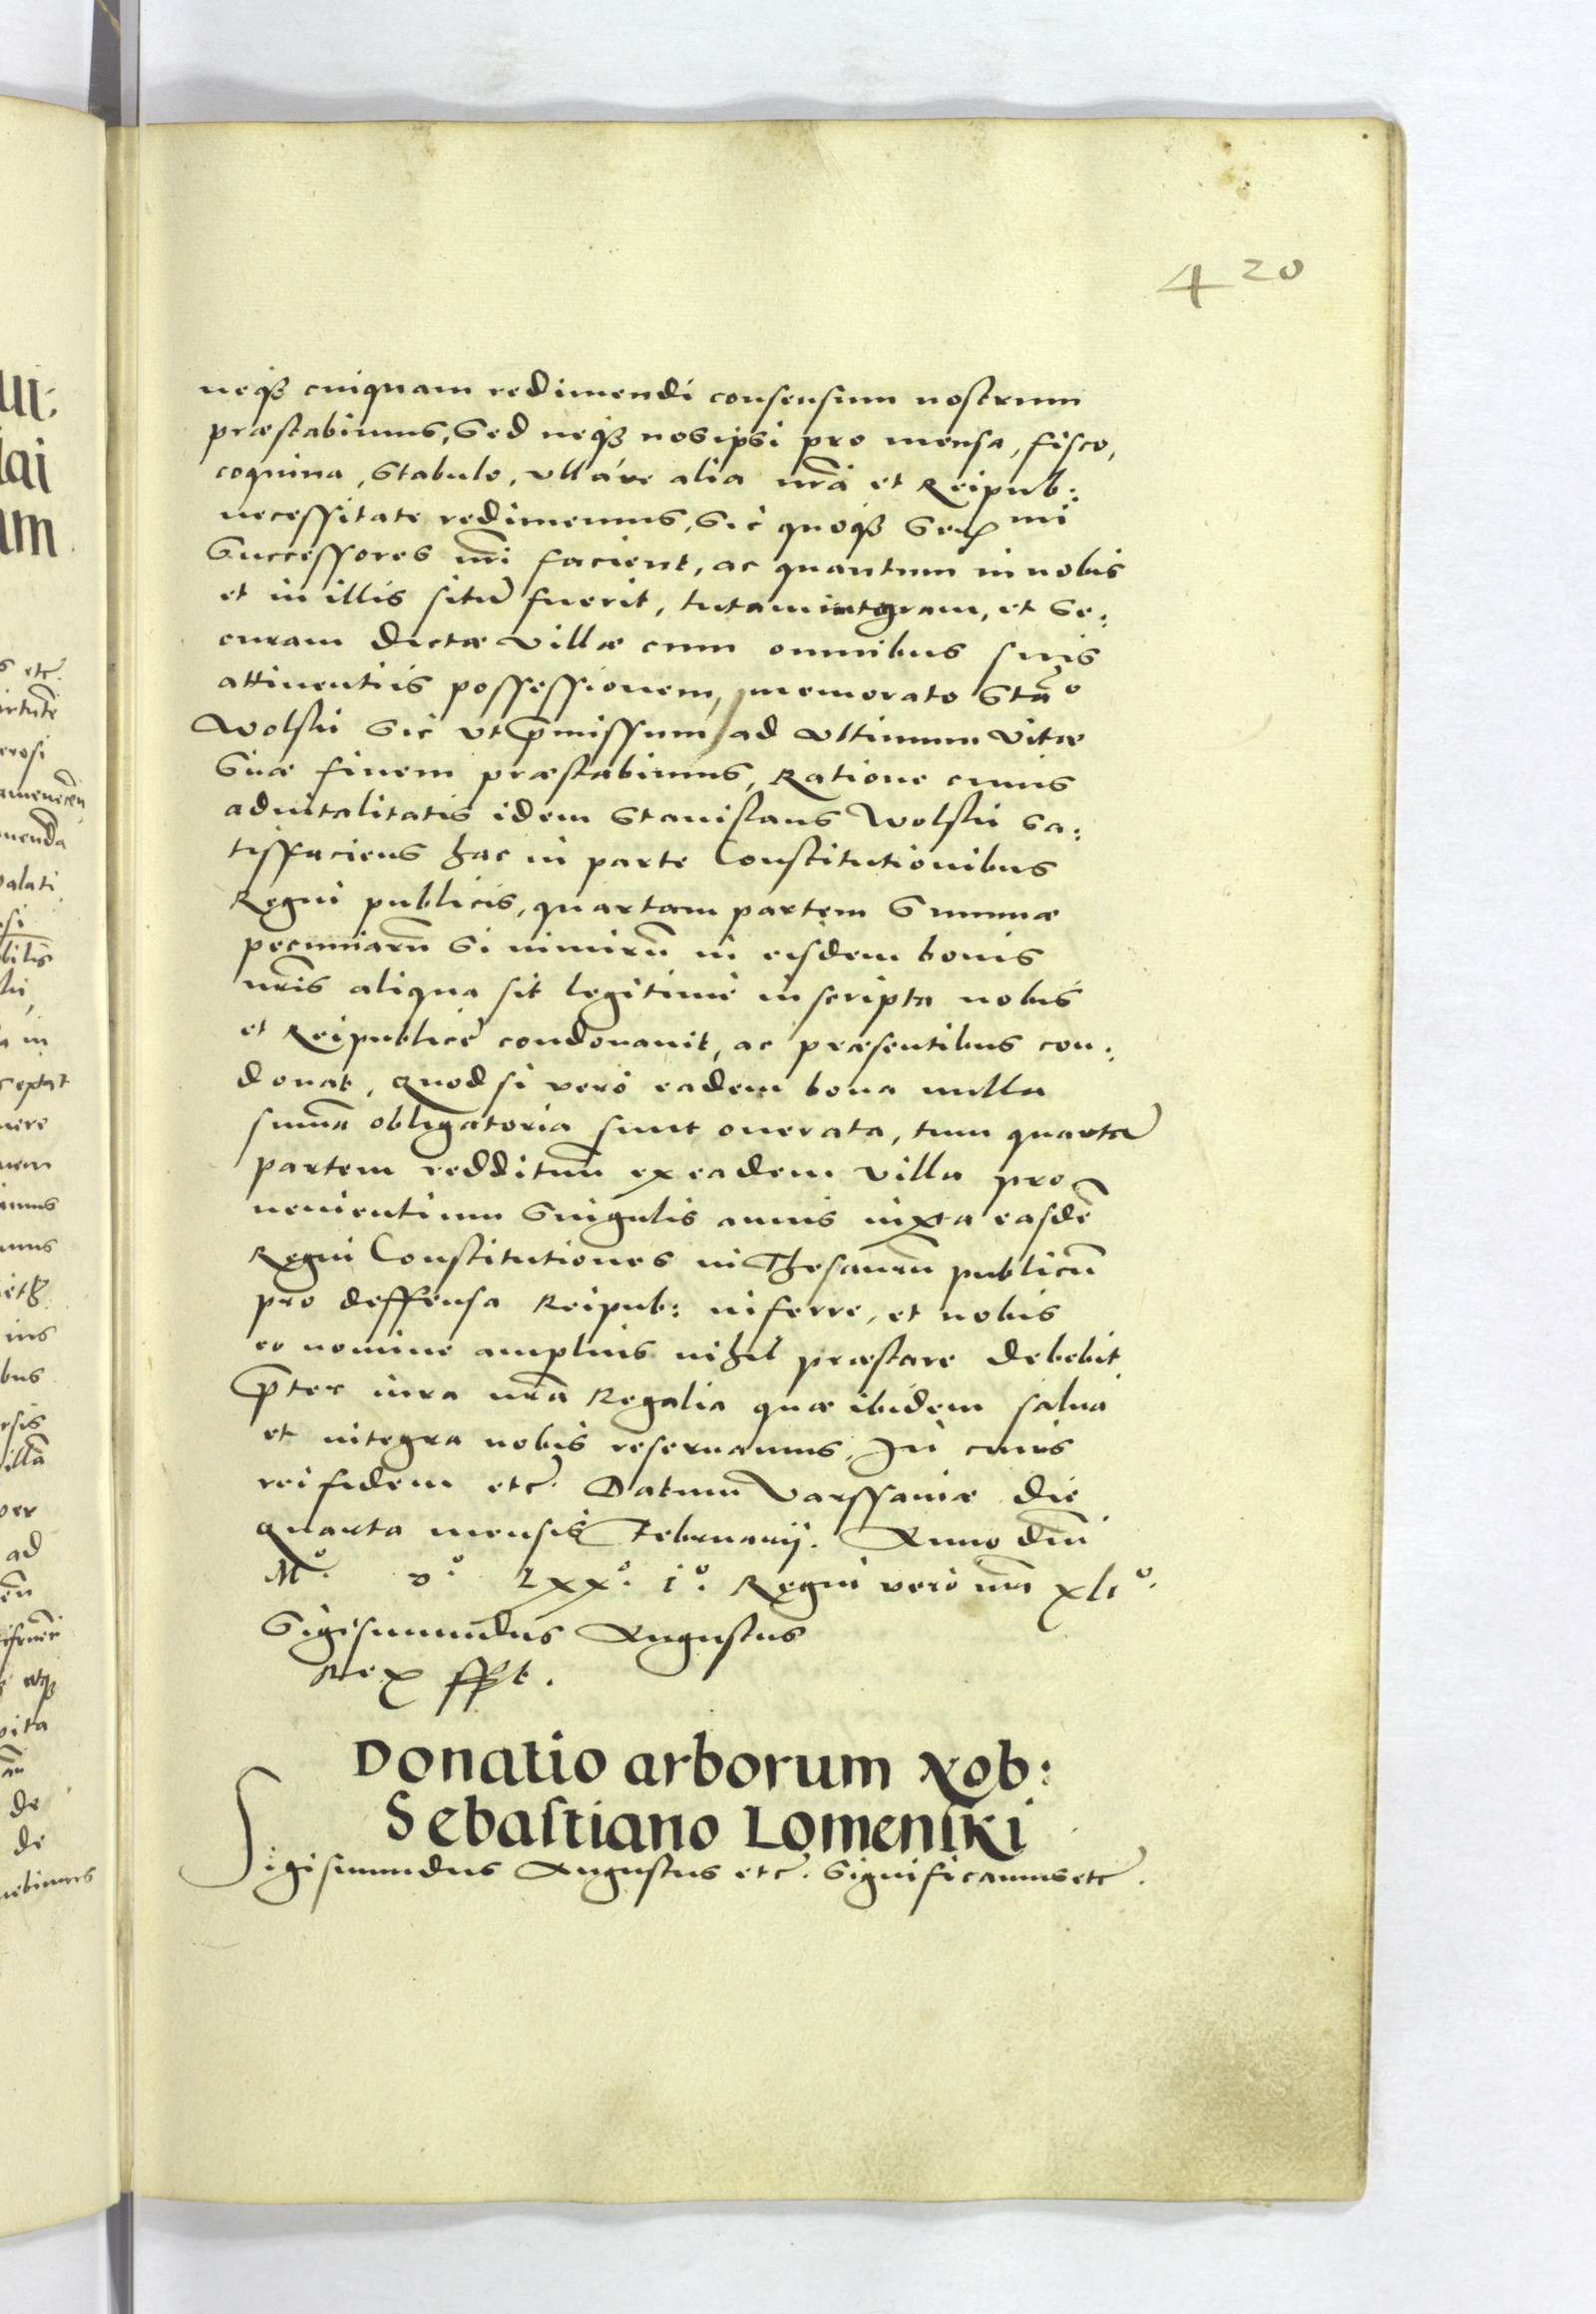 420
neqꝫ cuiquam redimendi consensum nostrum
præstabimus, Sed neqꝫ nos ipsi pro mensa, fisco,
coquina, Stabulo, vlláve alia nr̃a et Reipub:
necessitate redimemus, Sic quoqꝫ Ser̃mi
Successores nr̃i facient, ac quantum in nobis
et in illis sitũ fuerit, tutam integram, et Se:
curam dictæ villæ cum omnibus suis
attinentiis possessionem, memorato Stão
Wolski Sic vt p̃missum, ad vltimum vitæ
Suæ finem præstabimus, Ratione cuius
aduitalitatis idem Stanislaus Wolski sa:
tisfaciens hac in parte Constitutionibus
Regni publicis, quartam partem Summæ
pecuniarũ Si nimirũ in eisdem bonis
nr̃is aliqua sit legitime inscripta nobis
et Reipublicę condonauit, ac præsentibus con:
donat, Quod si vero eadem bona nulla
sum̃a obligatoria sunt onerata, tum quartã
partem reddituũ ex eadem villa pro
uenientium Singulis annis iuxta easdẽ
Regni Constitutiones in Thesaurũ publicũ
pro deffensa Reipub: inferre, et nobis
eo nomine amplius nihil præstare debebit
p̃ter iura nr̃a Regalia quæ ibidem salua
et integra nobis reseruamus, In cuius
rei fidem etc̃. Datum Varssauiæ die
quarta mensis Februarij. Anno dñi
Mº. vº. Lxxº. iº. Regni vero nr̃i xliº.
Sigismundus Augustus
Rex sspt.
Donatio arborum Nob:
Sebastiano Lomeniski
Sigismundus Augustus etc̃. Significamus etc̃.